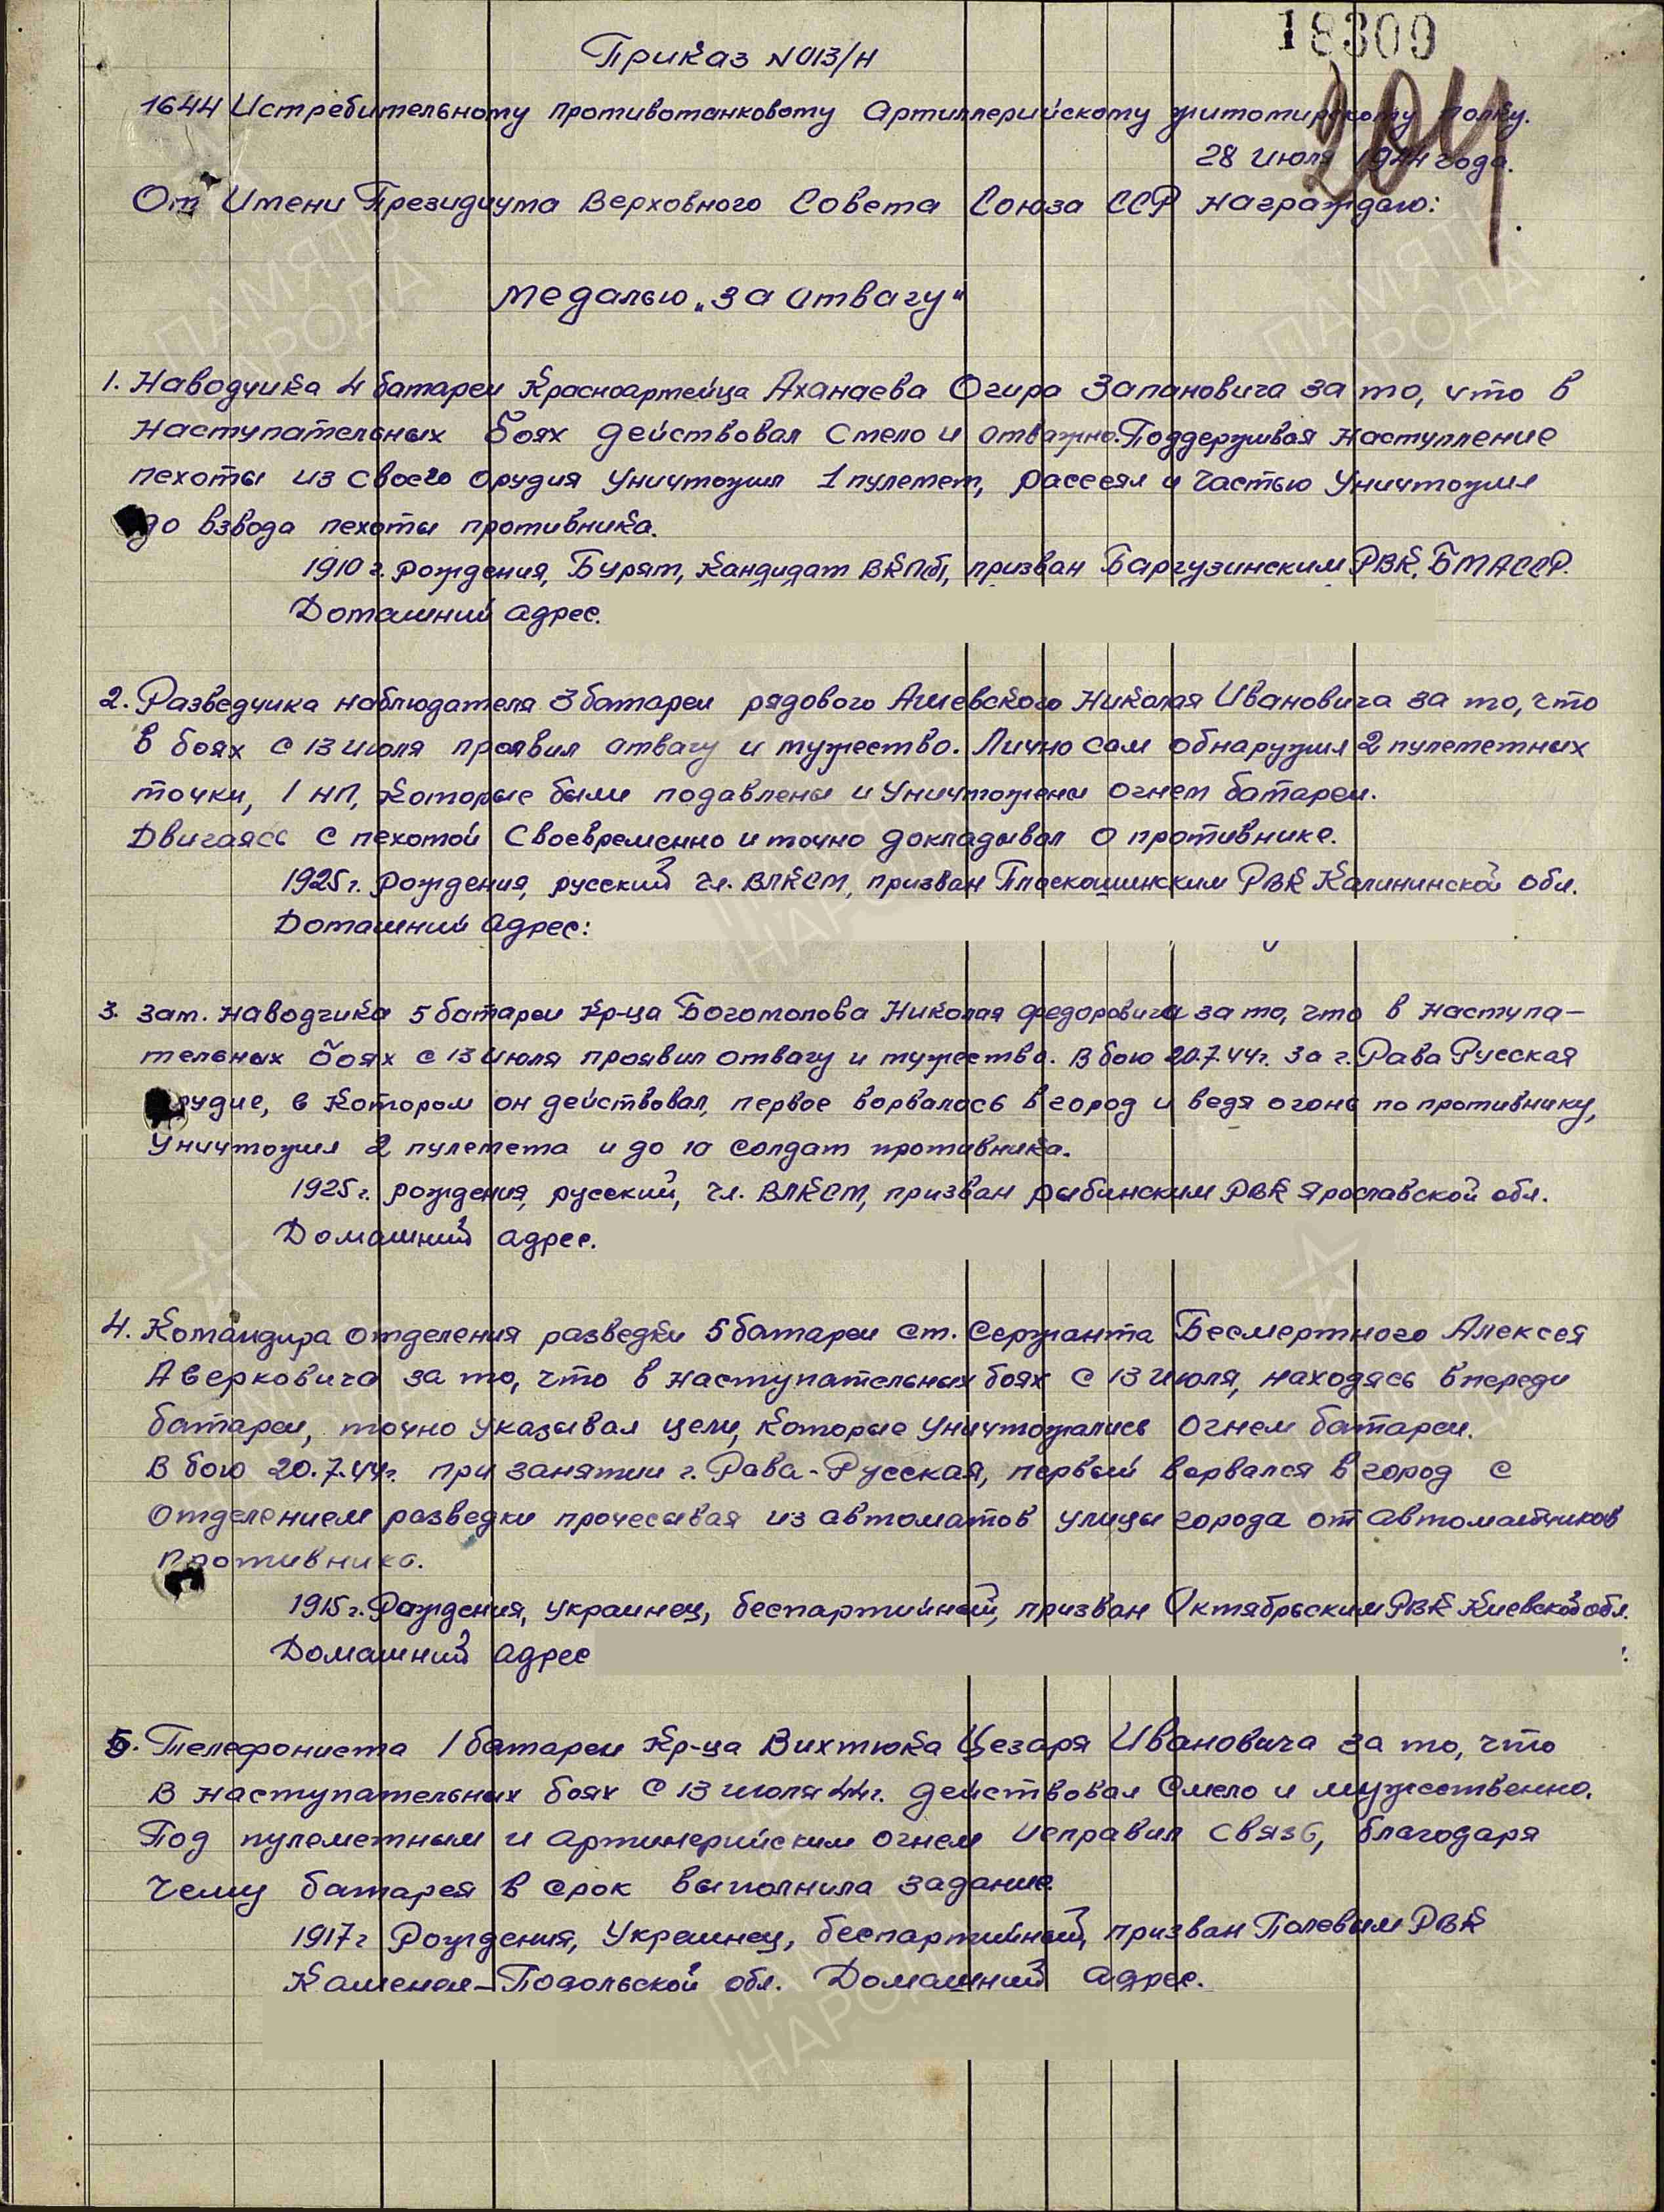 18309
204
Приказ N013/н
1644 Истребительному противотанковому Артиллерийскому житомирскому полку.
28 Июля 1944 года.
От Имени Президиума Верховного Совета Союза ССР награждаю:
медалью „За отвагу“
1. Наводчика 4 батареи Красноармейца Аханаева Огира Запановича за то, что в
наступательных боях действовал смело и отважно. Поддерживая наступление
пехоты из своего орудия уничтожил 1 пулемет, рассеял и частью уничтожил
до взвода пехоты противника.
1910 г. рождения, Бурят, Кандидат ВКПб, призван Баргузинским РВК, БМАССР.
Домашний адрес.
2. Разведчика наблюдателя 3 батареи рядового Ашевского Николая Ивановича за то, что
в боях с 13 июля проявил отвагу и мужество. Лично сам обнаружил 2 пулеметных
точки, 1 НП, которые были подавлены и уничтожены огнем батареи.
Двигаясь с пехотой своевременно и точно докладывал о противнике.
1925 г. рождения, русский чл. ВЛКСМ, призван Плоскошинским РВК Калининской обл.
Домашний адрес:
3. Зам. наводчика 5 батареи Кр-ца Богомолова Николая Федоровича за то, что в наступа-
тельных боях с 13 июля проявил отвагу и мужество. В бою 20.7.44г. за г. Рава Русская
орудие, в котором он действовал, первое ворвалось в город и ведя огонь по противнику,
уничтожил 2 пулемета и до 10 солдат противника.
1925 г. рождения, русский, чл. ВЛКСМ, призван рыбинским РВК Ярославской обл.
Домашний адрес.
4. Командира отделения разведки 5 батареи ст. сержанта Бесмертного Алексея
Аверковича за то, что в наступательных боях с 13 июля, находясь впереди
батареи, точно указывал цели, которые уничтожались огнем батареи.
В бою 20.7.44г. при занятии г. Рава-Русская, первый ворвался в город с
отделением разведки прочесывая из автоматов улицы города от автоматчиков
противника.
1915 г. Рождения, украинец, беспартийный, призван Октябрьским РВК Киевской обл.
Домашний адрес
5. Телефониста 1 батареи Кр-ца Вихтюка Цезаря Ивановича за то, что
в наступательных боях с 13 июля 44г. действовал смело и мужественно.
Под пулеметным и артиллерийским огнем исправил связь, благодаря
чему батарея в срок выполнила задание.
1917 г Рождения, Украинец, беспартийный, призван Полевым РВК
Каменец-Подольской обл. Домашний адрес.
ПАМЯТЬ НАРОДА